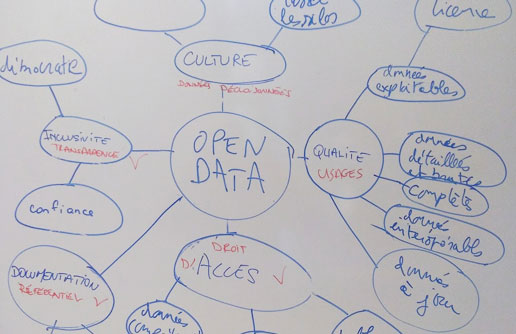 licence
démocratie
CULTURE
DONNÉES
données
exploitables
INCLUSIVITÉ
TRANSPARENCE
OPEN
DATA
QUALITÉ
USAGES
données
détaillées
et brutes
complètes
confiance
données
interopérables
DROIT
D'ACCÈS
DOCUMENTATION
RÉFÉRENTIEL
données
à jour
données